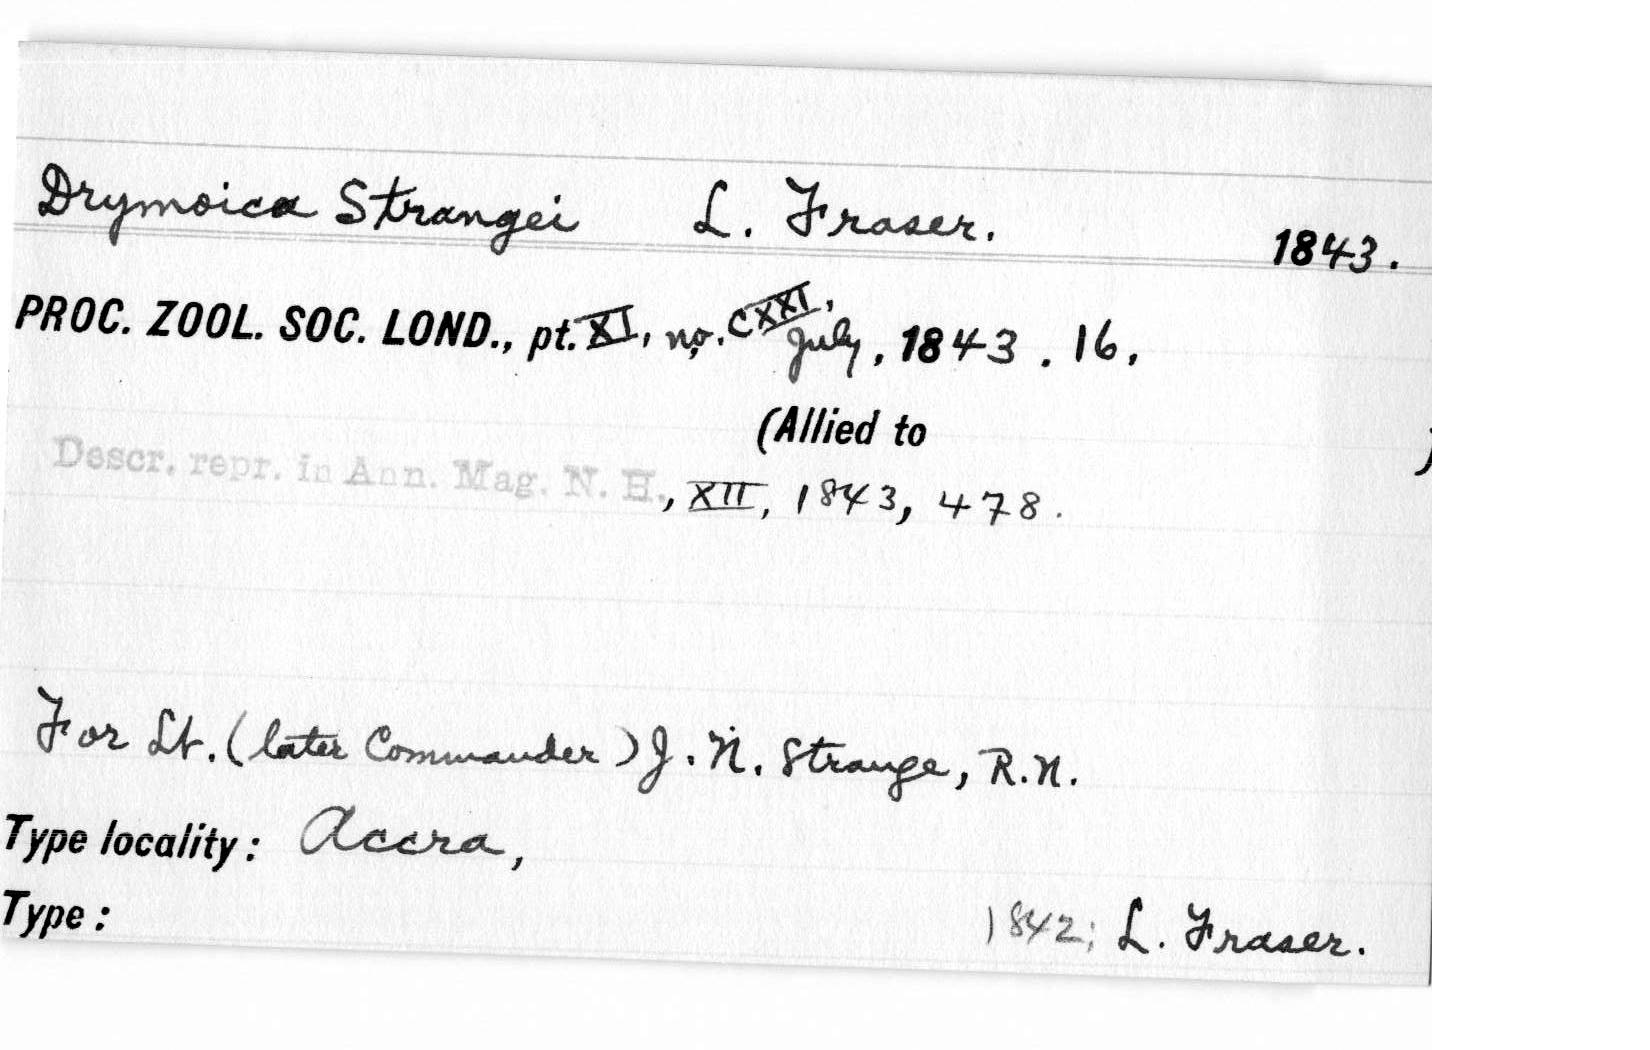 Drymoica Strangei L. Fraser. 1843.
PROC. ZOOL. SOC. LOND., pt. XI, no. CXXI, July, 1843. 16.
(Allied to )
Descr. repr. in Ann. Mag. N. H., XII, 1843, 478.
For Lt. (later Commander) J. N. Strange, R.N.
Type locality: Accra,
Type: 1842; L. Fraser.